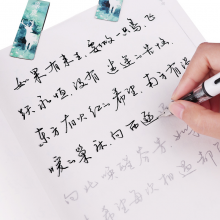 如果有来生，要做一只鸟，飞
越永恒，没有迷途的苦恼。
东方有火红的希望，南方有温
暖的巢床，向西逐
向北唤醒芬芳。如
希望每次相遇，都